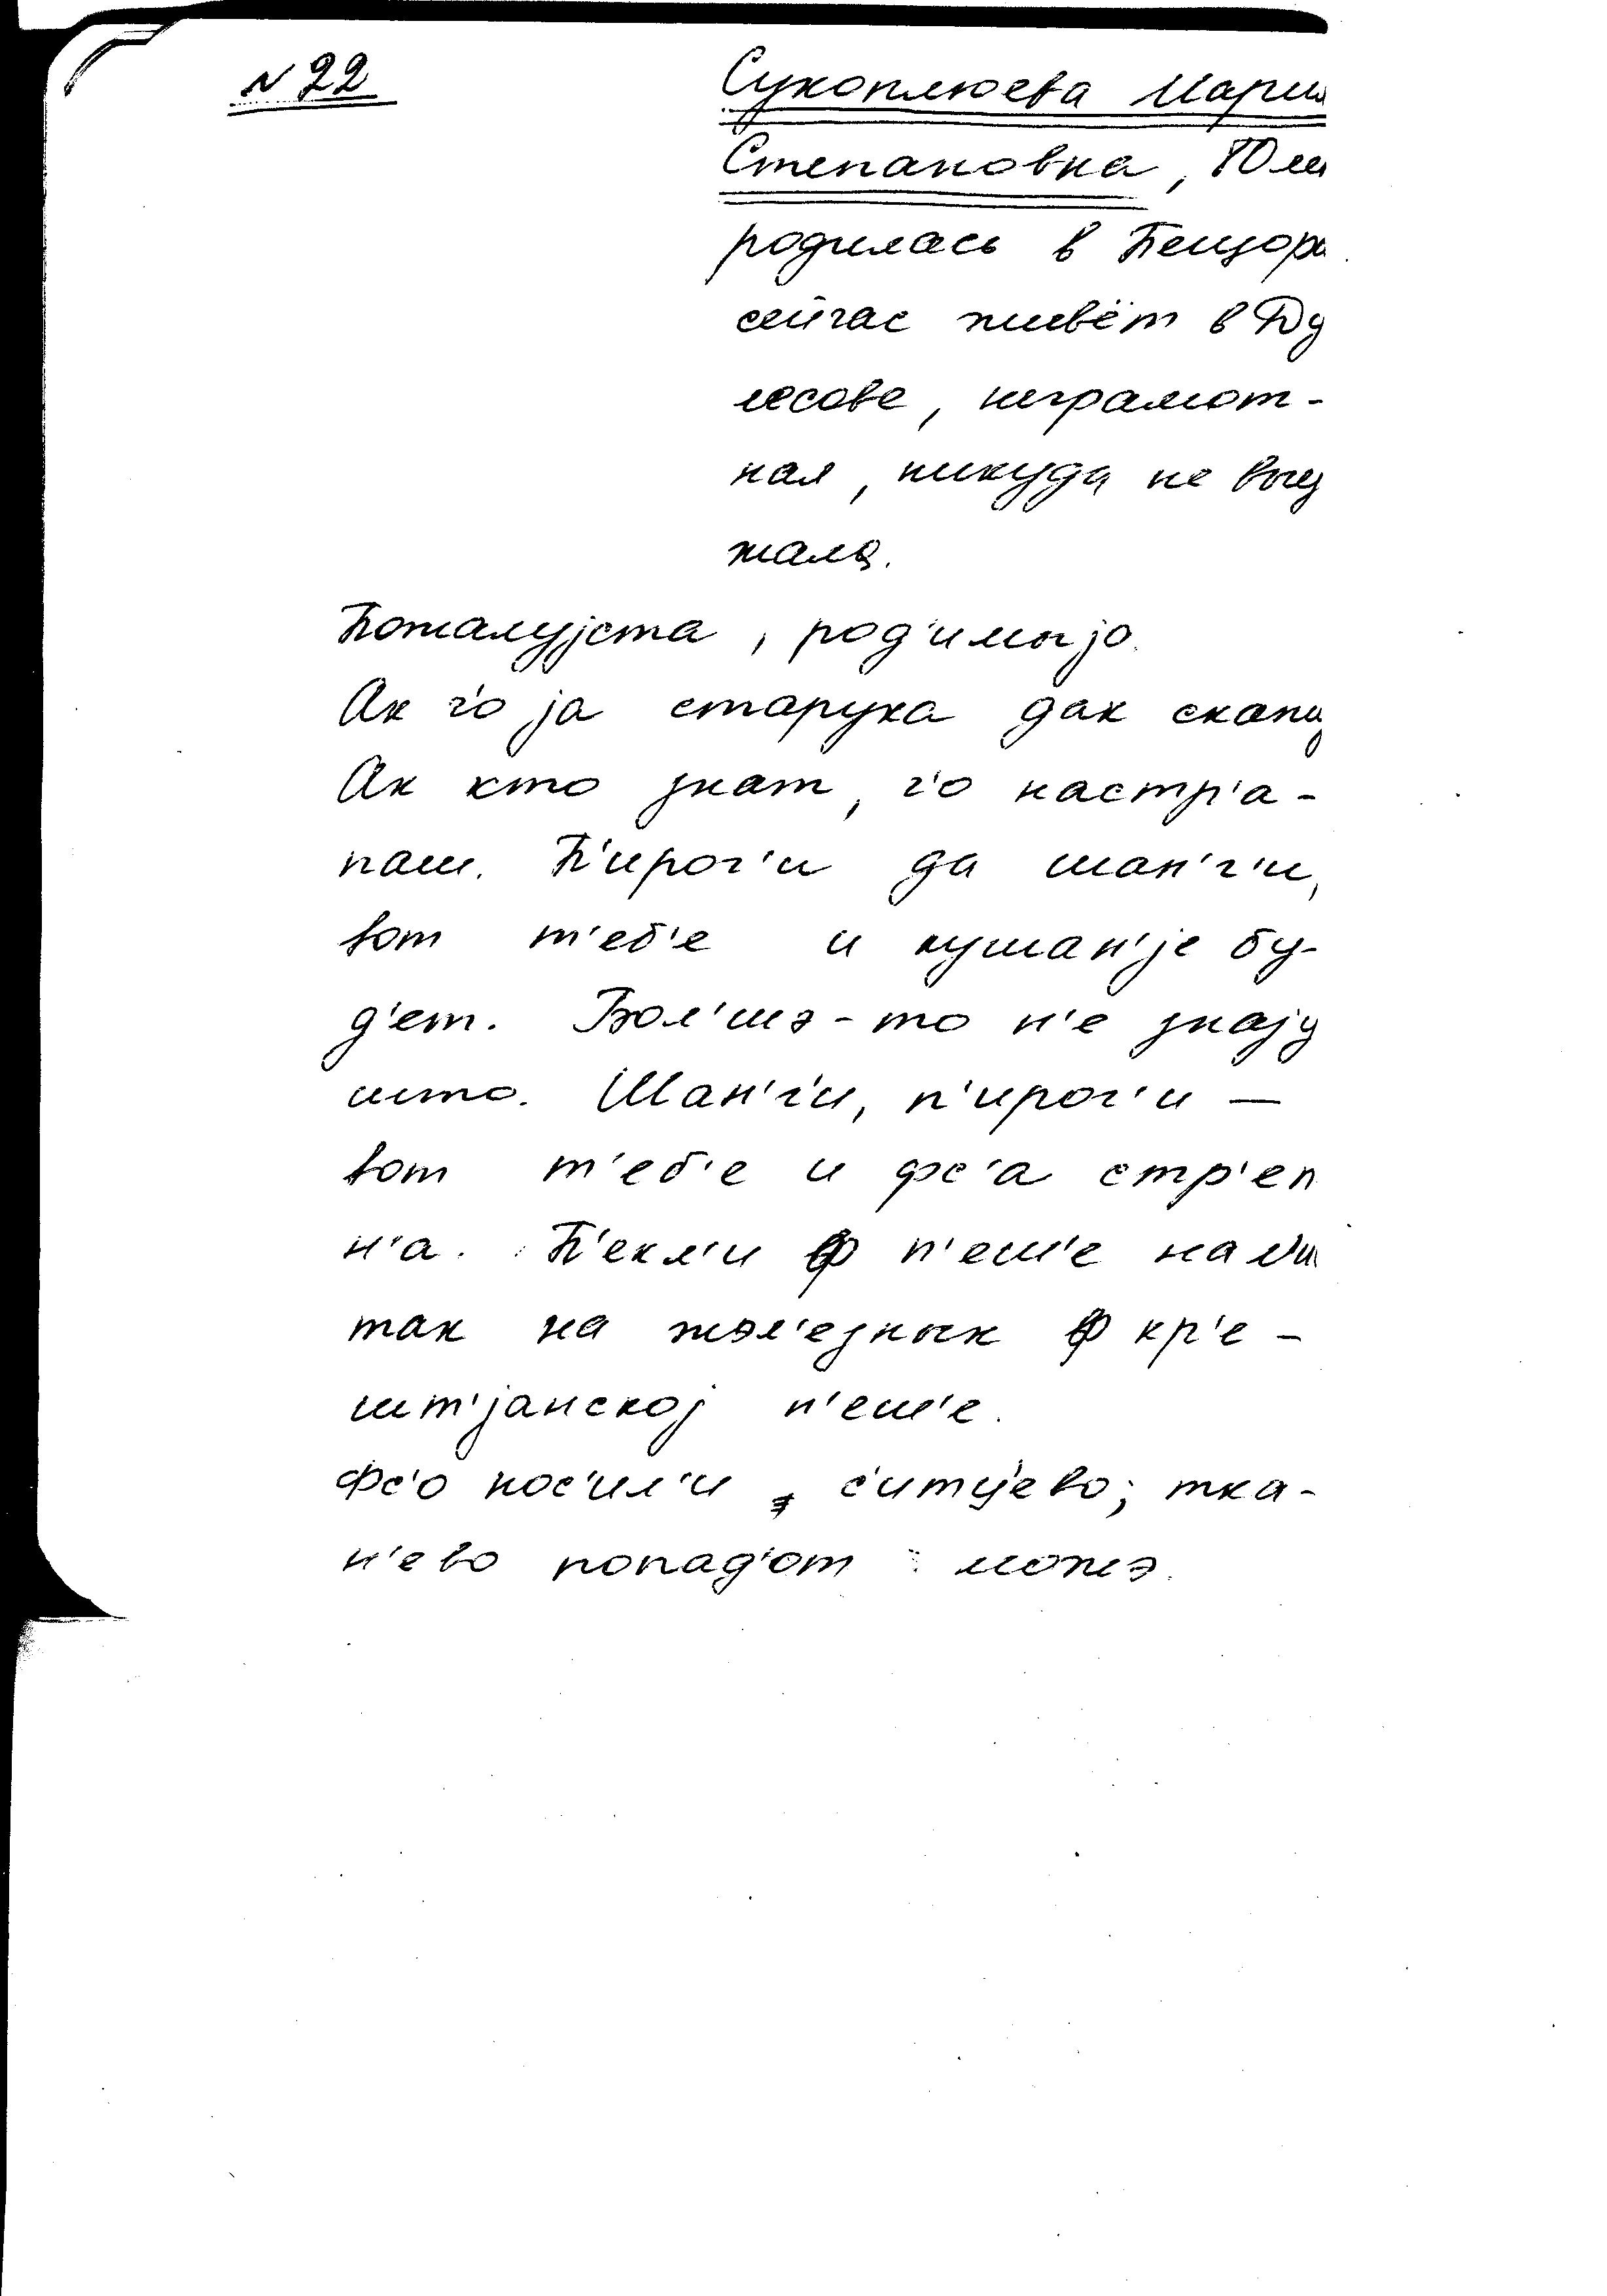 № 22
Сухоплюева Мария
Степановна, 80 ле
родилась в Пещоры
сейчас живёт в Ду
лесове, неграмот-
ная, никуда не выез
жала.
Пожалуjста, род'имыjо.
Ак ч'о jа старуха дак скажу
Ак кто знат, ч'о настр'а-
паш. П'ирог'и да шан'г'и,
вот т'еб'е и кушан'jе бу-
д'ет. Бол'шэ-то н'е знаjу
што. Шан'г'и, п'ирог'и —
вот т'еб'е и фс'а стр'еп
н'а. П'екл'и ф п'еш'е на ли
так на жэл'езных ф кр'е-
шт'jанскоj п'еш'е.
Фс'о нос'ил'и, с'итцево; тка-
н'ево попад'от можэ.